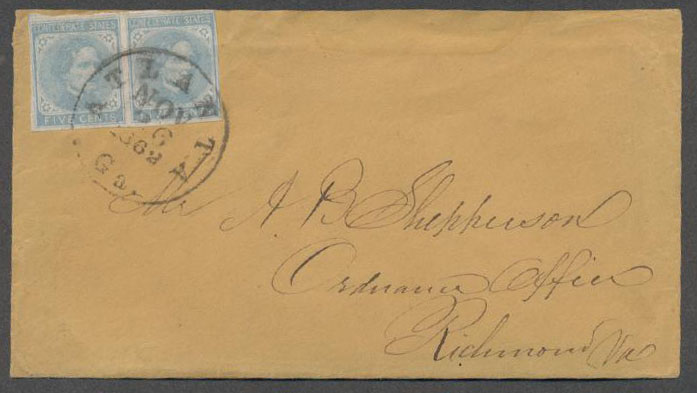 CONFEDERATE STATES CONFEDERATE STATES
FIVE CENTS FIVE CENTS
ATLANTA Ga
NOV
26
1862
Mr A. B. Shepperson
Ordnance Office
Richmond Va